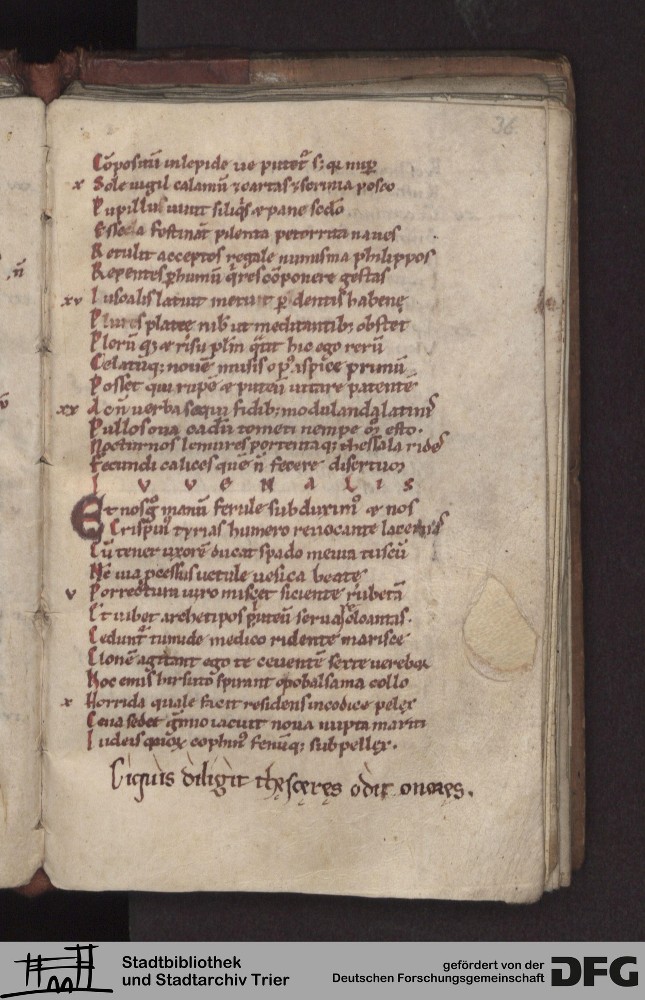 36
Cōpositū inlepide ue putet᷒ s; qa nup
x Sole uigil calamū & cartas & scrinia posco
Pupillus uiuit siliq̄s & pane scd̄o
Esseda festināt pilenta petorrita naues
Retulit acceptos regale numisma philippos
Repentes p humū q̄ res cōponere gestas
xv Luscalis latuit metuit p dentis habenę
Plures plateę nihil ut meditantib; obstet
Plorū
Celatūq; nouē musis op᷒ aspice primū
Posset qui rupē & puteū uitare patentē
xx Ac nō uerba sequi fidib; modulanda latinis
Pullos oua cadū temeti nempe
Nocturnos lemures portentaq; thessala rides
Fecundi calices quē n̄ fecere disertum
I V V E N A L I S
Et nos g̊ manū ferule subduxim᷒ & nos
Crispin᷒ tyrias humero reuocante lacernas
Cū tener uxorē ducat spado meuia tuscū
Nc̄ uia pcessus uetule uesica beate
v Porrectura uiro miscet siciente rubetā
Et iubet archetipos pluteū seruare cloantas.
Cedunt᷒ tumide medico ridente marisce
Clonē agitant ego te ceuentē sexte uerebor
Hoc emis hirsuto spirant opobalsama collo
x Horrida quale facit residens in codice pelex
Cena sedet gremio iacuit noua nupta mariti
Iudeis quorum cophin᷒ fenūq; suppellex.
Siquis diligit odit
Stadtbibliothek
und Stadtarchiv Trier
gefördert von der
Deutschen Forschungsgemeinschaft
DFG